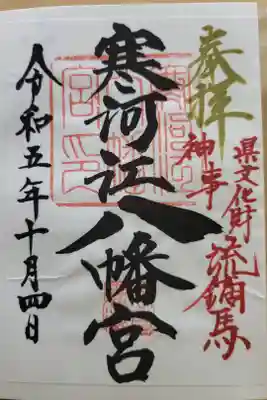 奉拝
県文化財
神事
流鏑馬
寒河江八幡宮
令和五年十月四日